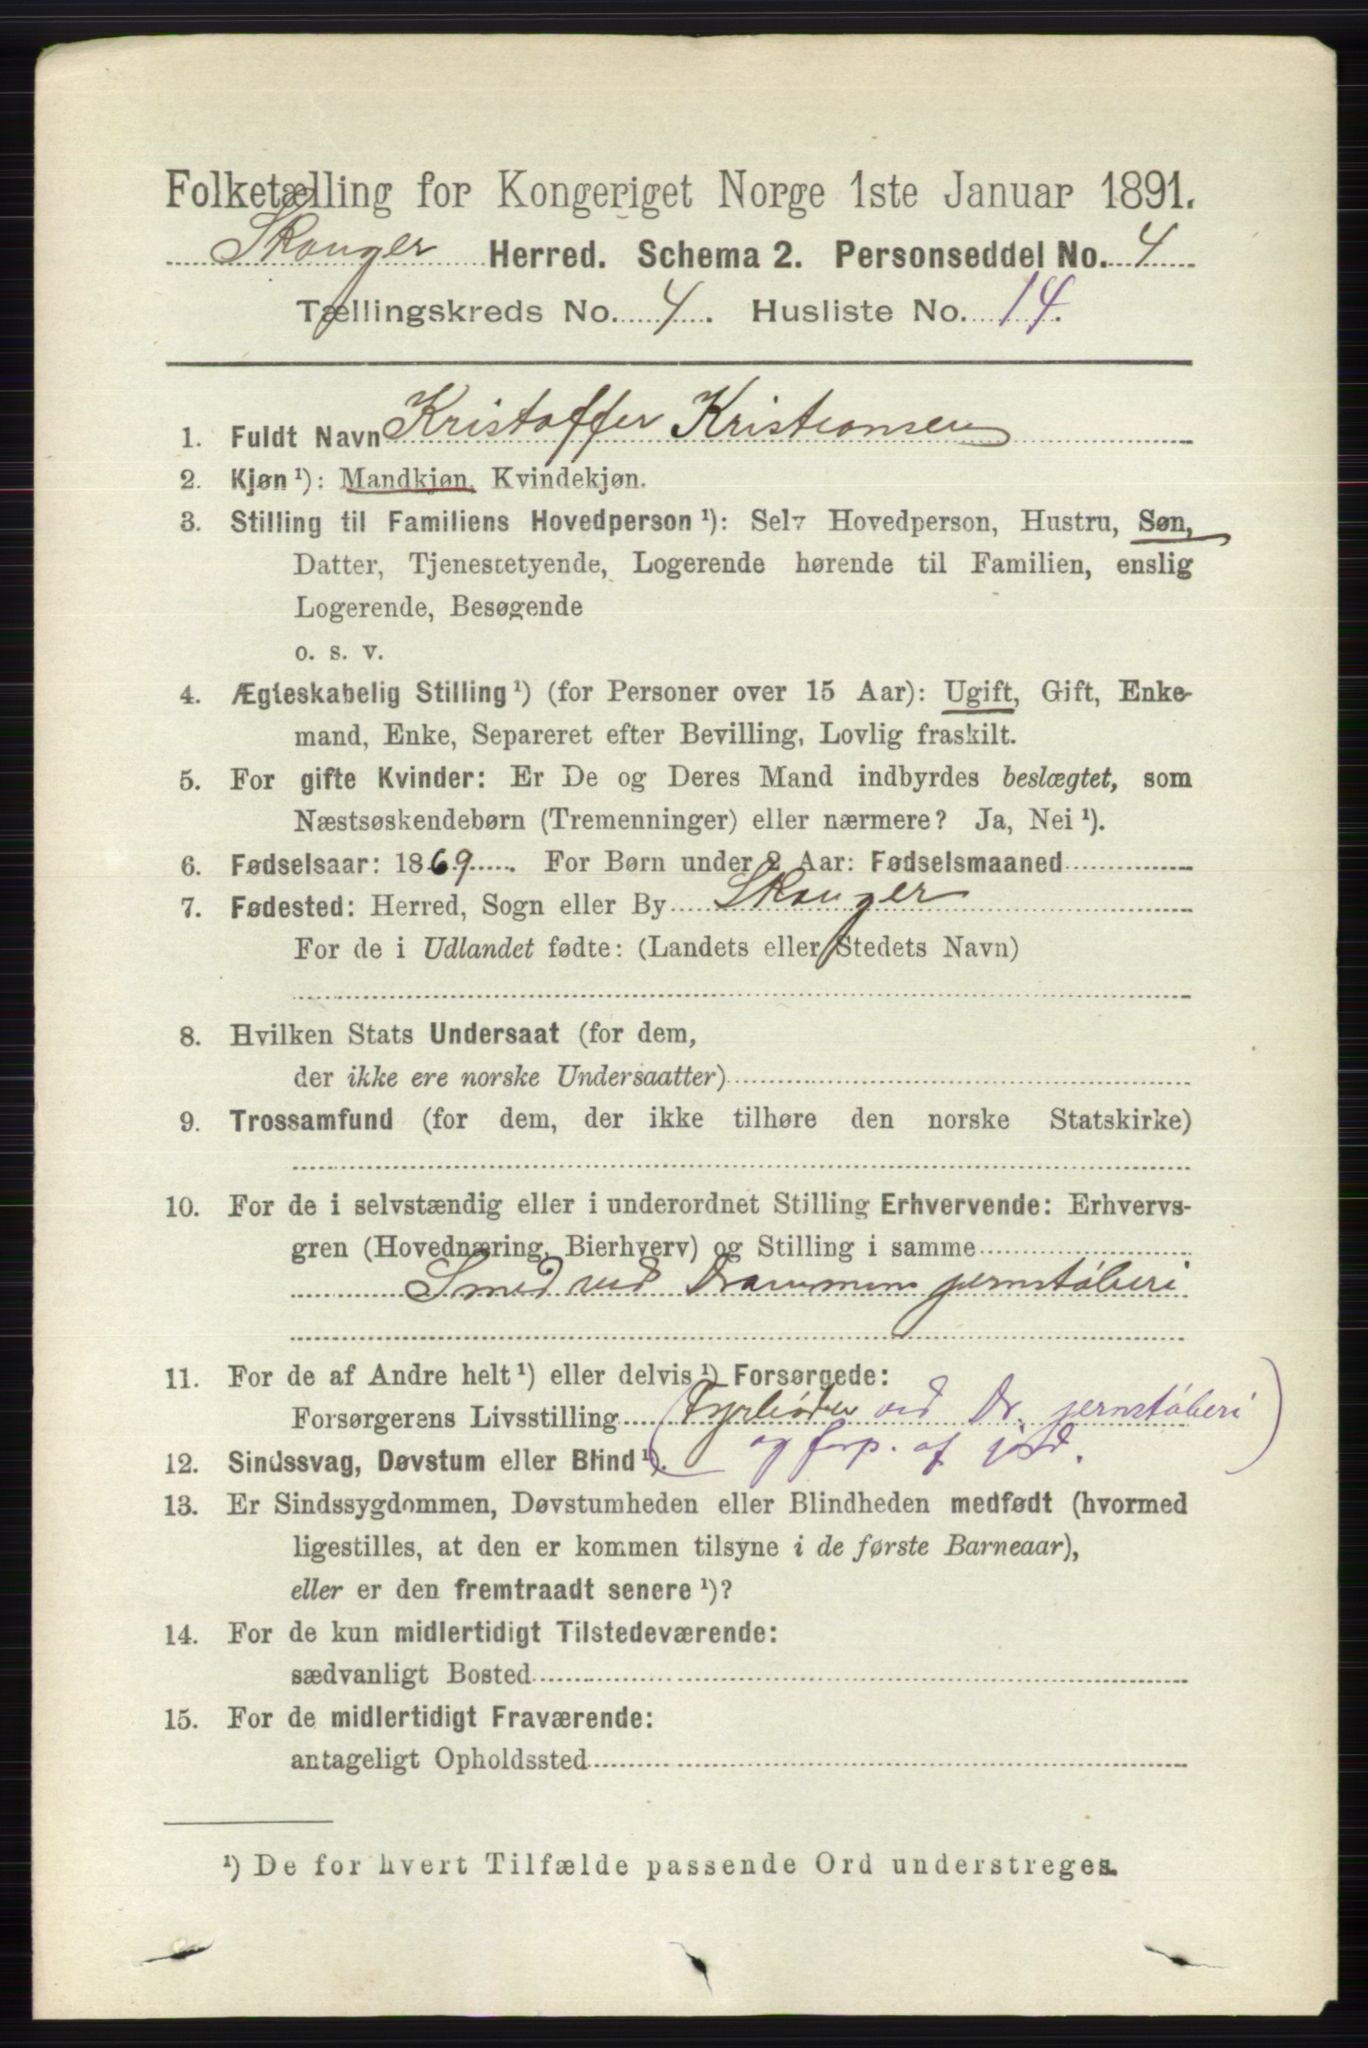 Folketælling for Kongeriget Norge 1ste Januar 1891.
Skouger Herred. Schema 2. Personseddel No. 4
Tællingskreds No. 4. Husliste No. 14.
1. Fuldt Navn Kristoffer Kristiansen
2. Kjøn ¹): Mandkjøn, Kvindekjøn.
3. Stilling til Familiens Hovedperson ¹): Selv Hovedperson, Hustru, Søn,
Datter, Tjenestetyende, Logerende hørende til Familien, enslig
Logerende, Besøgende
o. s. v.
4. Ægteskabelig Stilling ¹) (for Personer over 15 Aar): Ugift, Gift, Enke-
mand, Enke, Separeret efter Bevilling, Lovlig fraskilt.
5. For gifte Kvinder: Er De og Deres Mand indbyrdes beslægtet, som
Næstsøskendebørn (Tremenninger) eller nærmere? Ja, Nei ¹).
6. Fødselsaar: 1869. For Børn under 2 Aar: Fødselsmaaned
7. Fødested: Herred, Sogn eller By Skouger
For de i Udlandet fødte: (Landets eller Stedets Navn)
8. Hvilken Stats Undersaat (for dem,
der ikke ere norske Undersaatter)
9. Trossamfund (for dem, der ikke tilhøre den norske Statskirke)
10. For de i selvstændig eller i underordnet Stilling Erhvervende: Erhvervs-
gren (Hovednæring, Bierhverv) og Stilling i samme
Smed ved Drammens jernstøberi
11. For de af Andre helt ¹) eller delvis ¹) Forsørgede:
Forsørgerens Livsstilling (Fyrbøder ved Dr. jernstøberi
og forp. af jord.)
12. Sindssvag, Døvstum eller Blind ¹).
13. Er Sindssygdommen, Døvstumheden eller Blindheden medfødt (hvormed
ligestilles, at den er kommen tilsyne i de første Barneaar),
eller er den fremtraadt senere ¹)?
14. For de kun midlertidigt Tilstedeværende:
sædvanligt Bosted
15. For de midlertidigt Fraværende:
antageligt Opholdssted
¹) De for hvert Tilfælde passende Ord understreges.